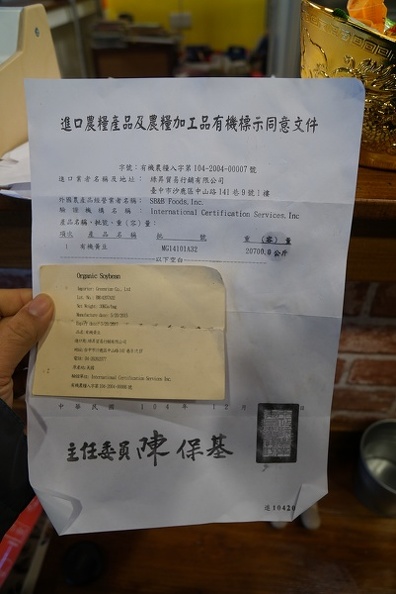 進口農糧產品及農糧加工品有機標示同意文件
字號：有機農糧入字第104-2004-00007號
進口業者名稱及地址： 綠昇貿易行銷有限公司
臺中市沙鹿區中山路141巷9號1樓
外國農產品經營業者名稱： SB&B Foods, Inc.
驗證機構名稱： International Certification Services, Inc
產品名稱、批號、重(容)量：
項次 產品名稱 批號 重(容)量
1 有機黃豆 MG14101A32 20700.0 公斤
以下空白
Organic Soybean
Importer: Greenstar Co., Ltd
品名:有機黃豆
驗證單位: International Certification Services Inc.
中華民國 104 年 12 月 日
主任委員 陳保基